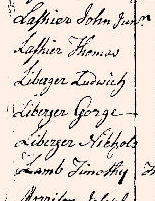 Lashier John Junr
Lashier Thomas
Liberger Ludwich
Liberger George
Liberger Nichols
Lamb Timothy